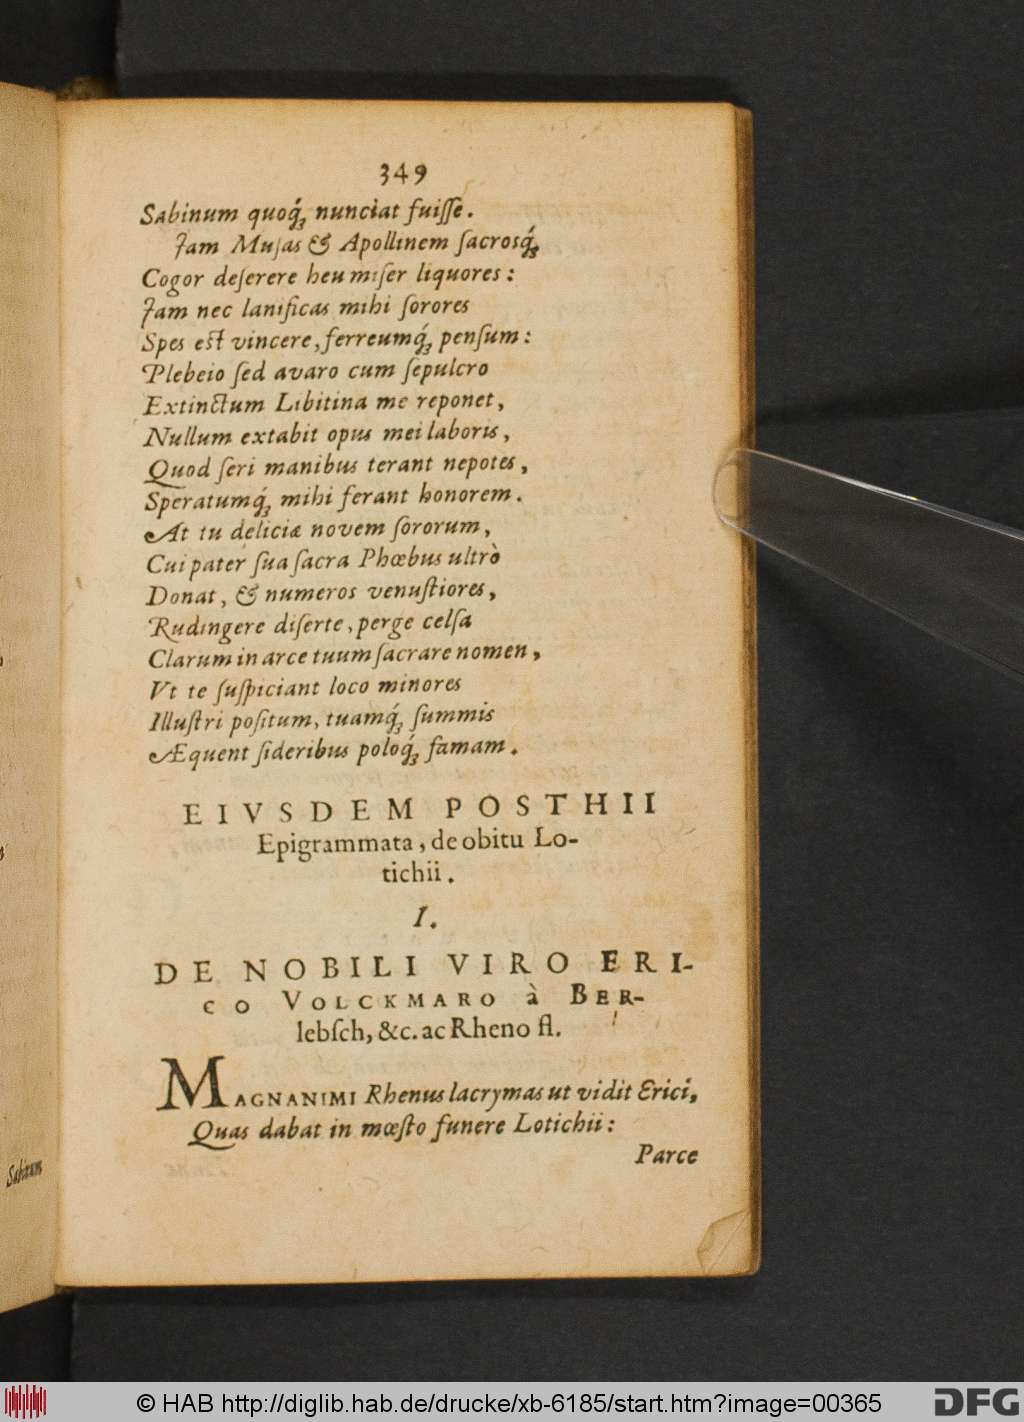 349
Sabinum quoq́ꝫ nunciat fuiſſe.
Jam Muſas & Apollinem ſacrosq́ꝫ
Cogor deſerere heu miſer liquores:
Jam nec lanificas mihi ſorores
Spes eſt vincere, ferreumq́ꝫ penſum:
Plebeio ſed avaro cum ſepulcro
Extinctum Libitina me reponet,
Nullum extabit opus mei laboris,
Quod ſeri manibus terant nepotes,
Speratumq́ꝫ mihi ferant honorem.
At tu deliciæ novem ſororum,
Cui pater ſua ſacra Phœbus ultrò
Donat, & numeros venuſtiores,
Rudingere diſerte, perge celſa
Clarum in arce tuum ſacrare nomen,
Vt te ſuſpiciant loco minores
Illuſtri poſitum, tuamq́ꝫ ſummis
Æquent ſideribus poloq́ꝫ famam.
EIVSDEM POSTHII
Epigrammata, de obitu Lo-
tichii.
I.
DE NOBILI VIRO ERI-
CO VOLCKMARO à BER-
lebſch, &c. ac Rheno fl.
MAGNANIMI Rhenus lacrymas ut vidit Erici,
Quas dabat in mœſto funere Lotichii:
Parce
Sabinum
© HAB http://diglib.hab.de/drucke/xb-6185/start.htm?image=00365
DFG